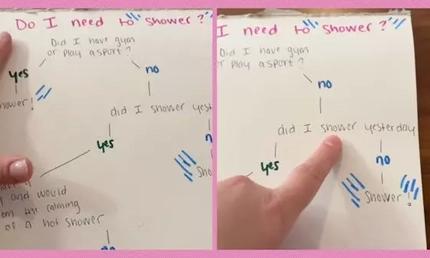 Do I need to shower?
Did I have gym
or play a sport?
yes
no
shower!
did I shower yest
yes
no
and would
calming
of a hot shower
no
I need to shower?
Did I have gym
r play a sport?
no
did I shower yesterday
yes
no
Shower!